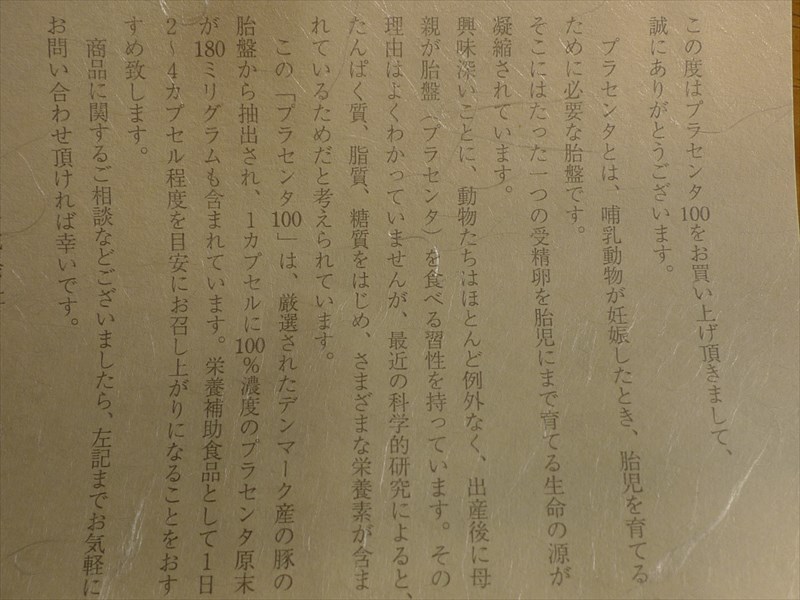 この度はプラセンタ100をお買い上げ頂きまして、
誠にありがとうございます。
プラセンタとは、哺乳動物が妊娠したとき、胎児を育てる
ために必要な胎盤です。
そこにはたった一つの受精卵を胎児にまで育てる生命の源が
凝縮されています。
興味深いことに、動物たちはほとんど例外なく、出産後に母
親が胎盤（プラセンタ）を食べる習性を持っています。その
理由はよくわかっていませんが、最近の科学的研究によると、
たんぱく質、脂質、糖質をはじめ、さまざまな栄養素が含ま
れているためだと考えられています。
この「プラセンタ100」は、厳選されたデンマーク産の豚の
胎盤から抽出され、1カプセルに100%濃度のプラセンタ原末
が180ミリグラムも含まれています。栄養補助食品として1日
2〜4カプセル程度を目安にお召し上がりになることをおす
すめ致します。
商品に関するご相談などございましたら、左記までお気軽に
お問い合わせ頂ければ幸いです。